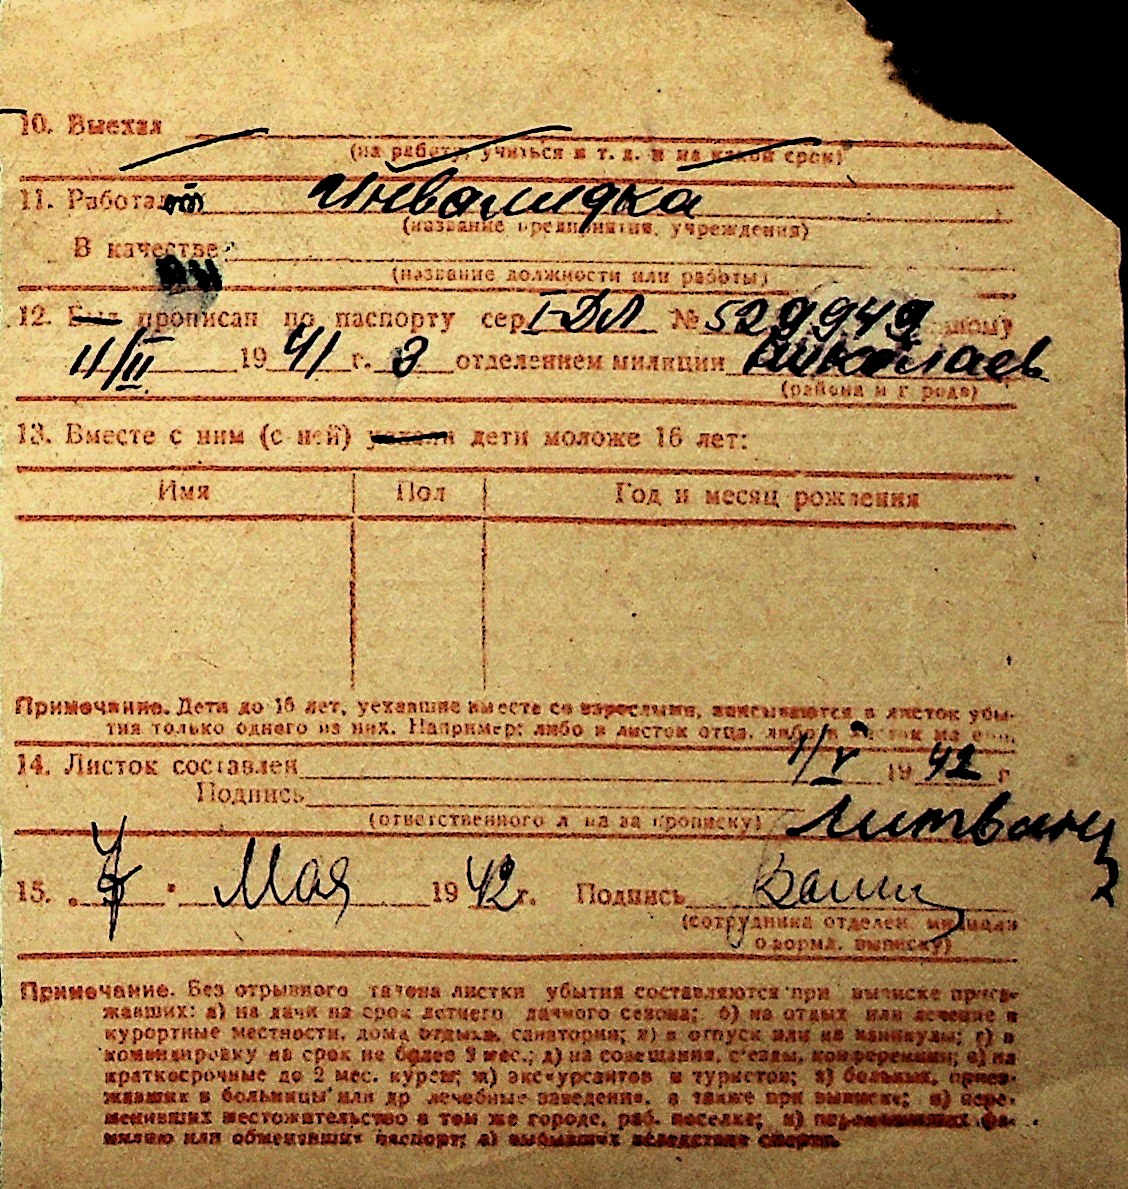 10. Выехал
(на работу, учиться и т. д. и на какой срок)
11. Работал инвалидка
(название предприятия, учреждения)
В качестве
(название должности или работы)
12. Был прописан по паспорту сер. I-ДЛ № 529949
11/II 1941 г. 3 отделением милиции Николаев
(района и города)
13. Вместе с ним (с ней) уехали дети моложе 16 лет:
Имя Пол Год и месяц рождения
Примечание. Дети до 16 лет, уехавшие вместе со взрослыми, вписываются в листок убы-
тия только одного из них. Например: либо в листок отца, либо в листок матери.
14. Листок составлен 1/V 1942 г
Подпись
(ответственного лица за прописку) Литвин
15. Мая 1942 г. Подпись
(сотрудника отделен. милиции
оформл. выписку)
Примечание. Без отрывного талона листки убытия составляются при выписке приез-
жавших: а) на дачи на срок летнего дачного сезона; б) на отдых или лечение в
курортные местности, дома отдыха, санатории; в) в отпуск или на каникулы; г) в
командировку на срок не более 3 мес.; д) на совещания, с'езды, конференции; е) на
краткосрочные до 2 мес. курсы; ж) экскурсантов и туристов; з) больных, приез-
жавших в больницы или др лечебные заведения, а также при выписке; и) пере-
менивших местожительство в том же городе, раб. поселке; к) переменивших фа-
милию или обменявших паспорт; л) выбывших вследствие смерти.